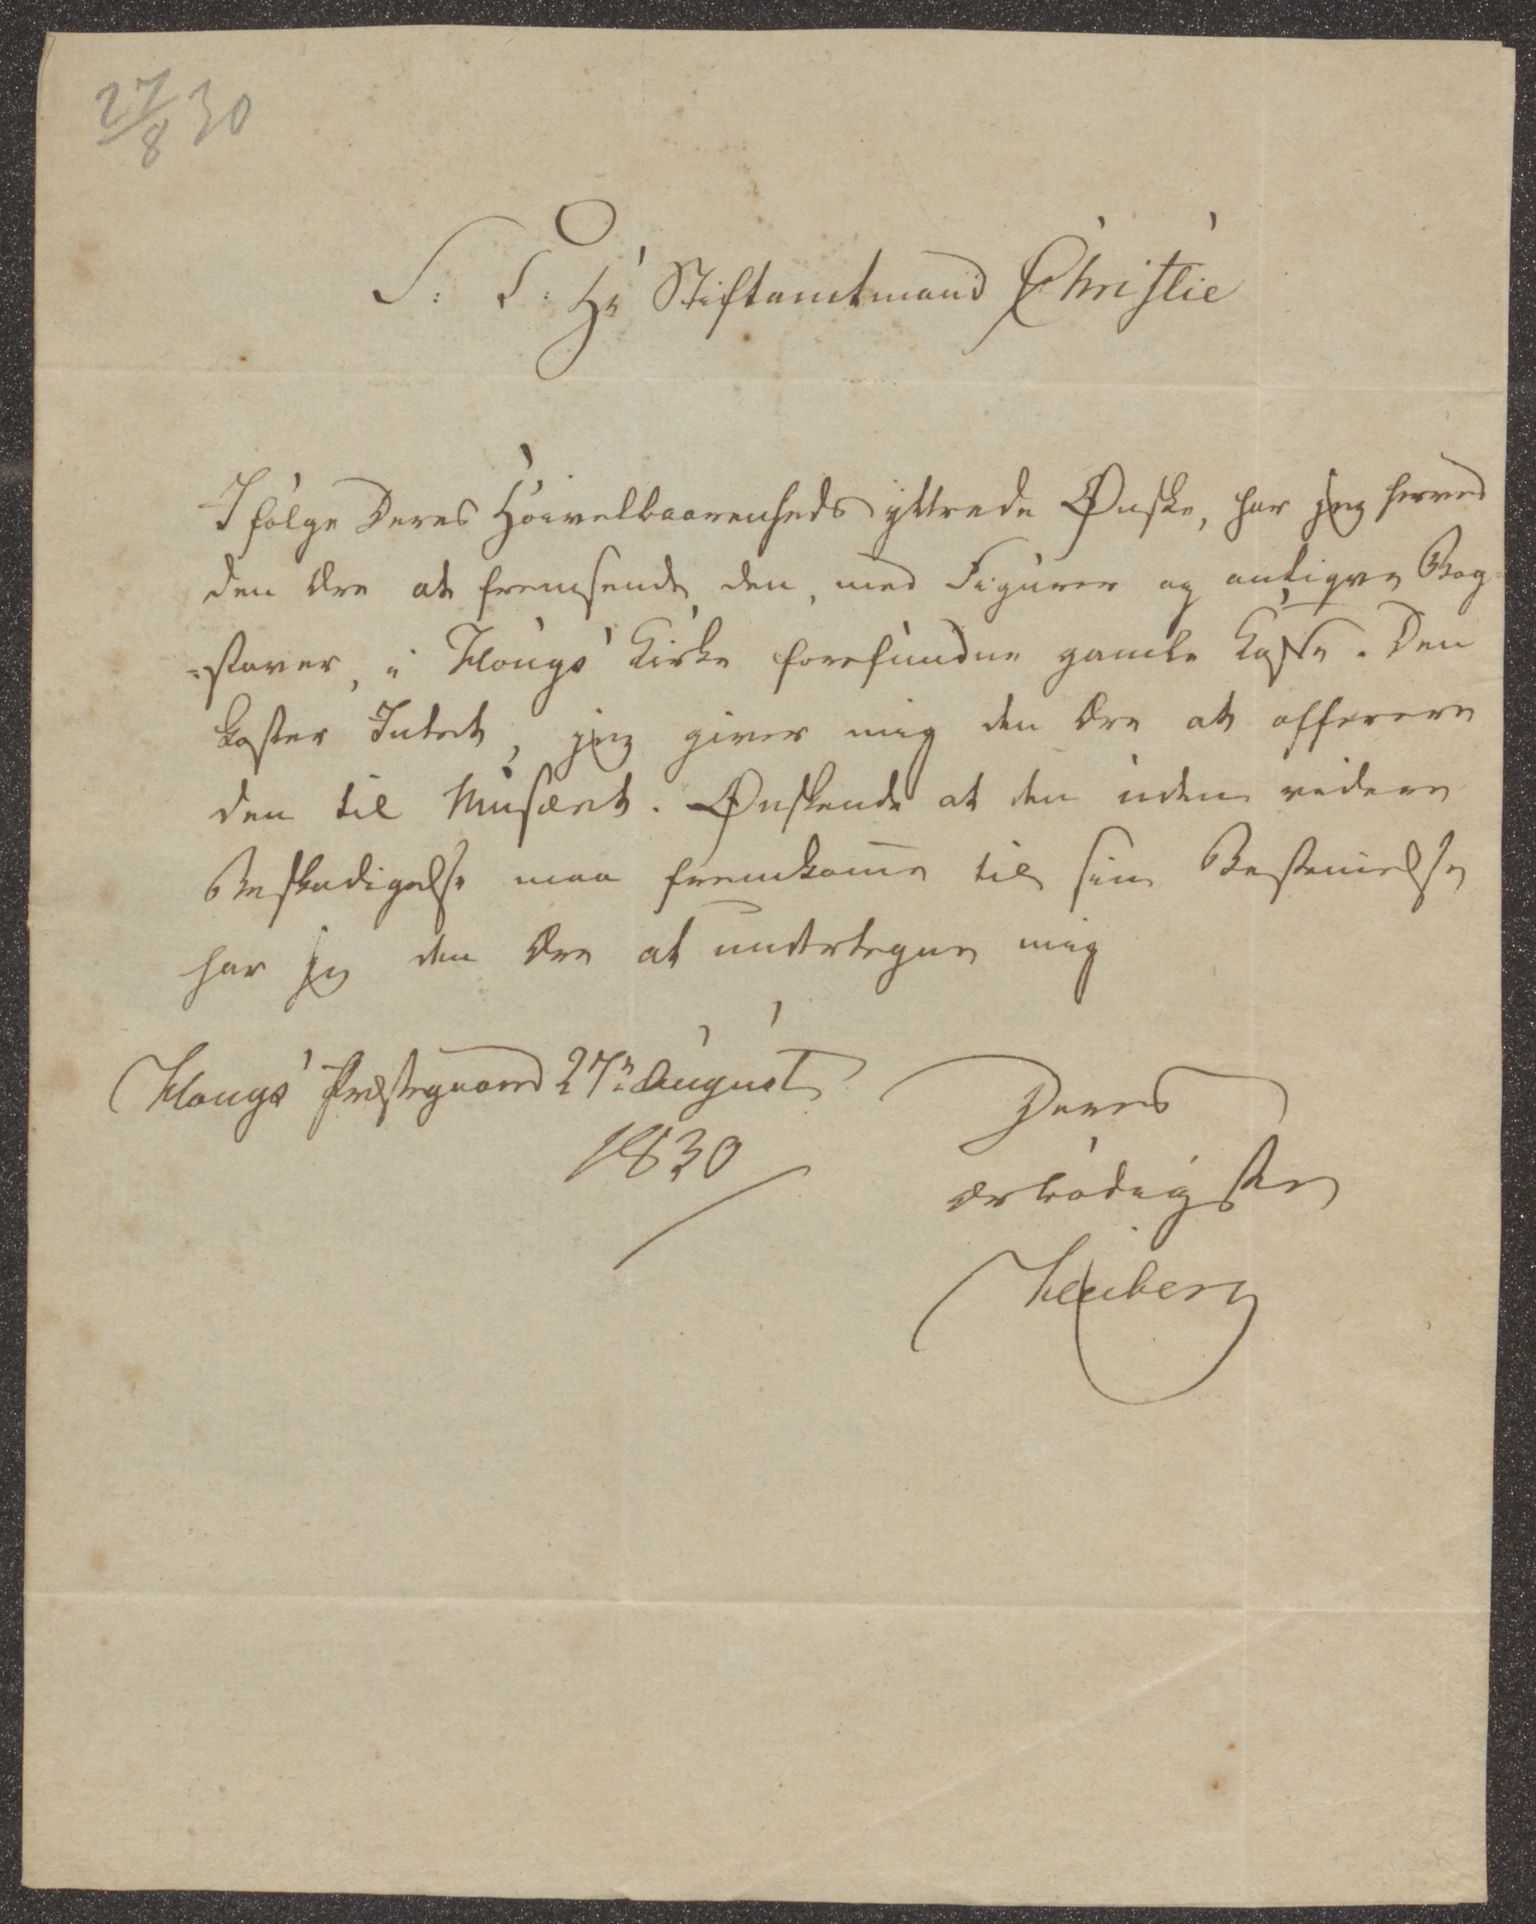 27/8 30
S: T: Hr Stiftamtmand Christie
Ifølge Deres Høivelbaarenheds yttrede Ønske, har jeg herved
den Ære at fremsende den, med Figurer og antiqve Bog-
=staver, i Hougs Kirke forefundne gamle Kasse. Den
koster Intet, jeg giver mig den Ære at offerere
den til Musæet. Ønskende at den uden videre
Beskadigelse maa fremkom̅e til sin Bestemelse
har jeg den Ære at undertegne mig
Hougs Præstegaard 27n August
1830
Deres
ærbødigste
Heiberg